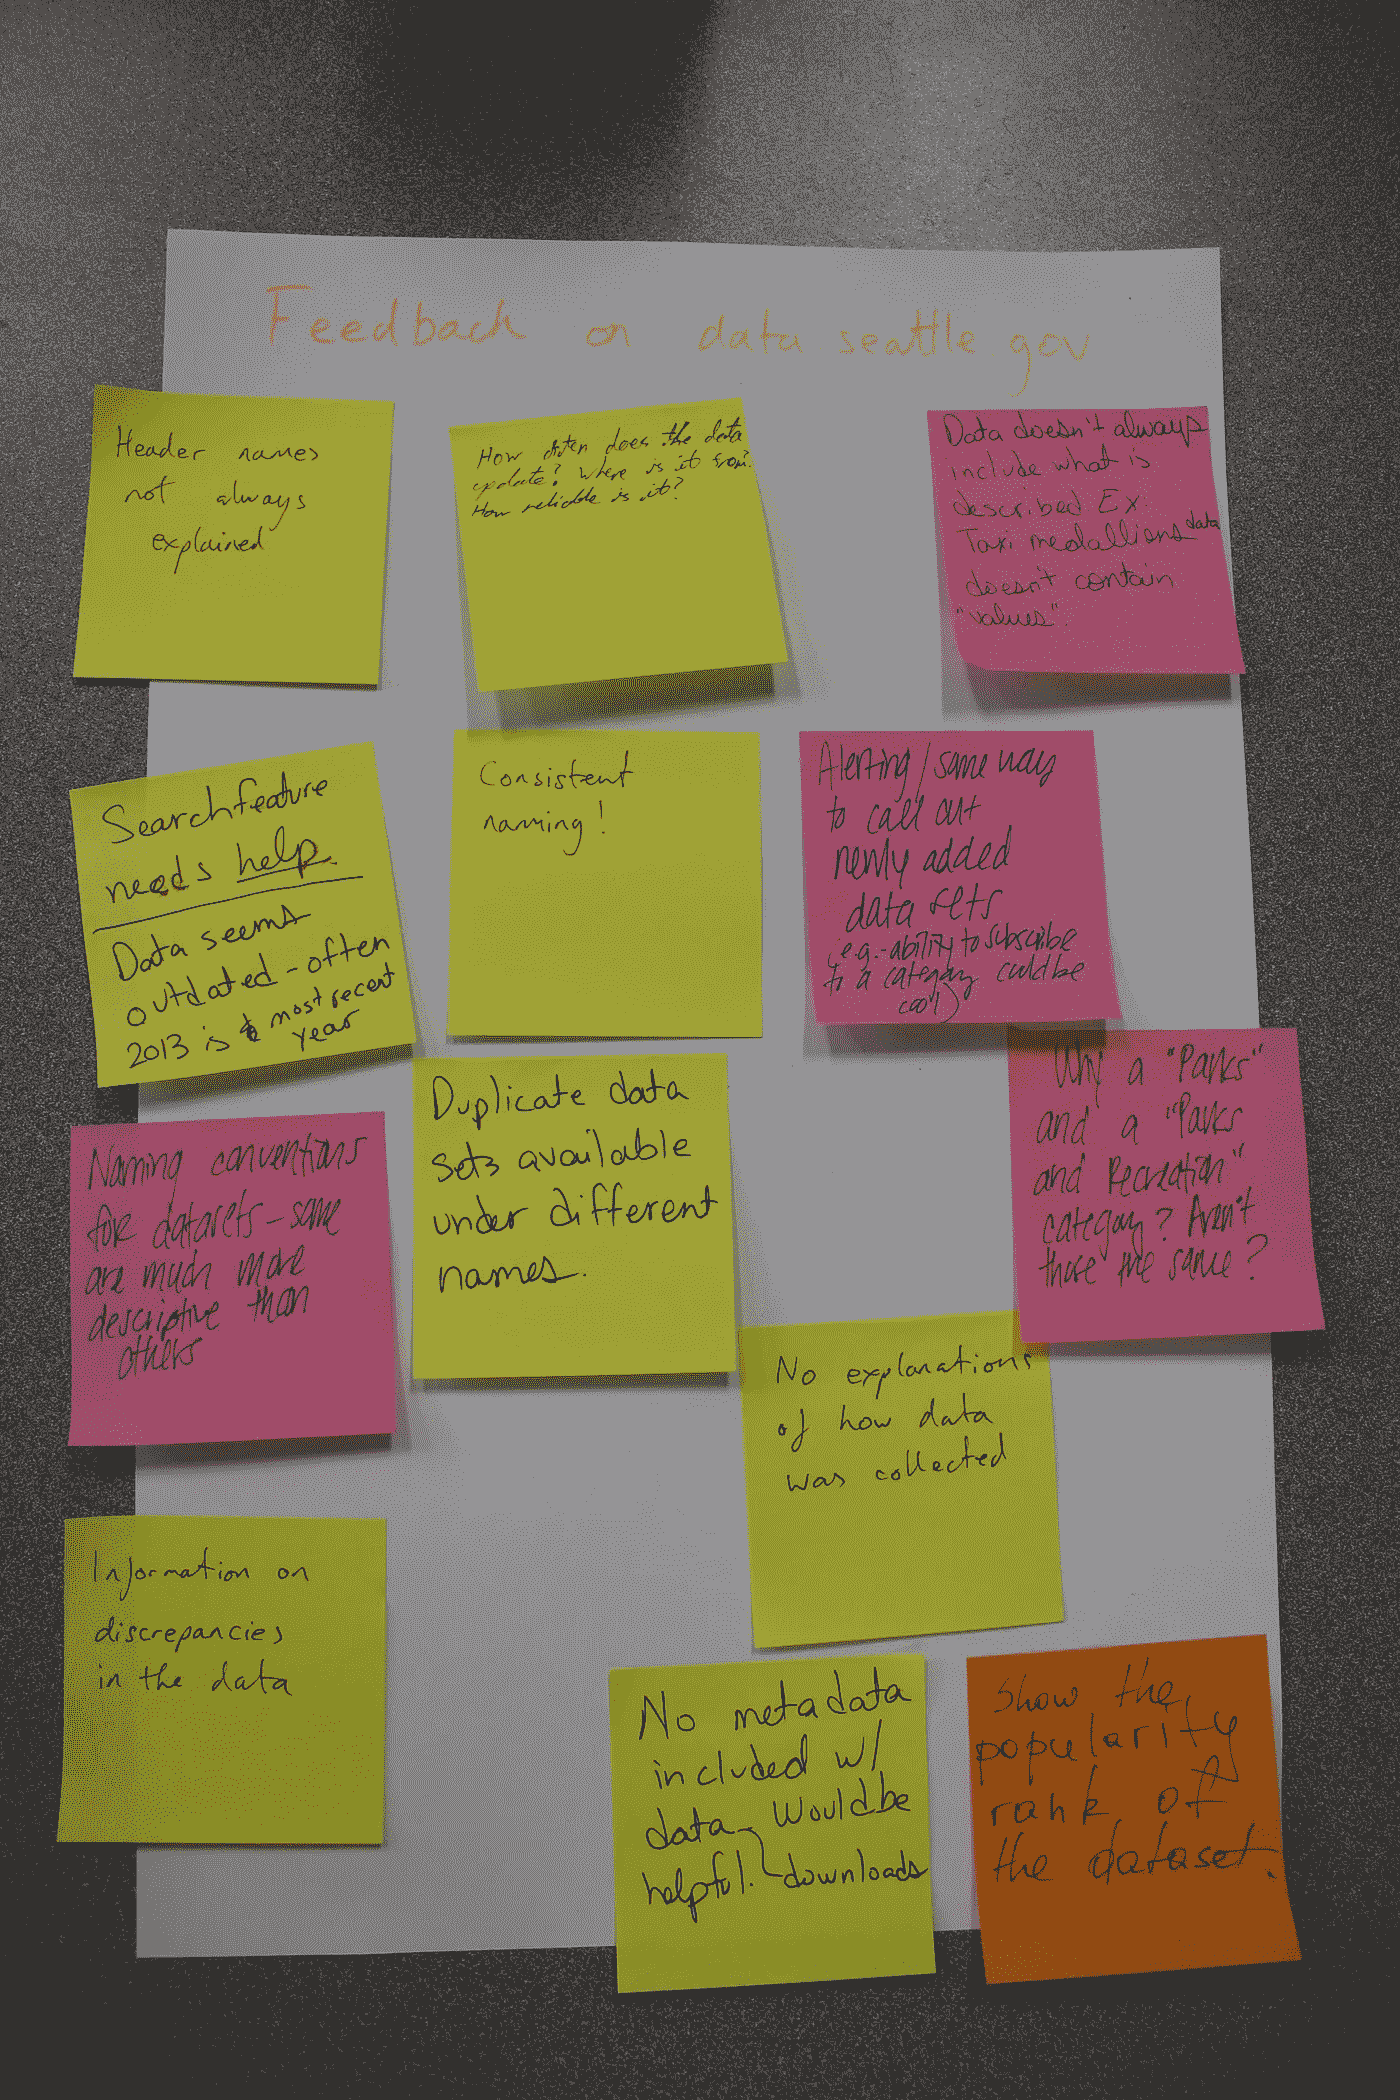 Feedback on data seattle gov
Header names
not always
explained
How often does the data
update? Where is it from?
How reliable is it?
Data doesn't always
include what is
described Ex.
Taxi medallions data
doesn't contain
"values".
Search feature
needs help.
Data seems
outdated - often
2013 is most recent
year
Consistent
naming!
Alerting / some way
to call out
newly added
data sets
(e.g. - ability to subscribe
to a category could be
cool)
Naming conventions
for datasets - some
are much more
descriptive than
others
Duplicate data
sets available
under different
names.
Why a "Parks"
and a "Parks
and Recreation"
category? Aren't
those the same?
No explanations
of how data
was collected
Information on
discrepancies
in the data
No metadata
included w/
data downloads
Would be
helpful.
Show the
popularity
rank of
the dataset.